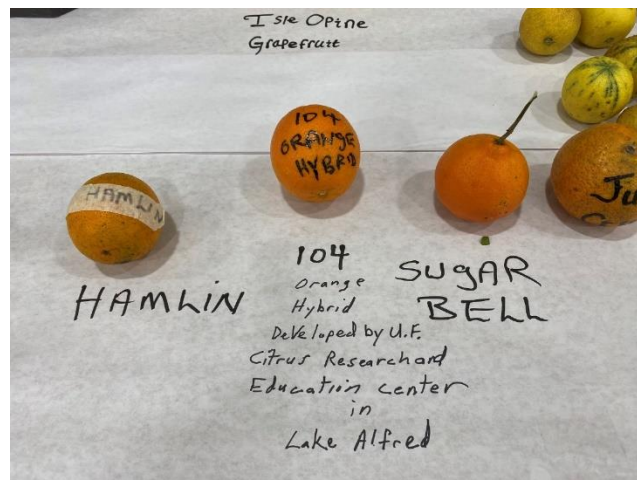 Isle Opine
Grapefruit
104
ORANGE
HYBRID
HAMLIN
HAMLIN
104
Orange
Hybrid
Developed by U.F.
Citrus Research and
Education Center
in
Lake Alfred
SUGAR
BELL
Ju